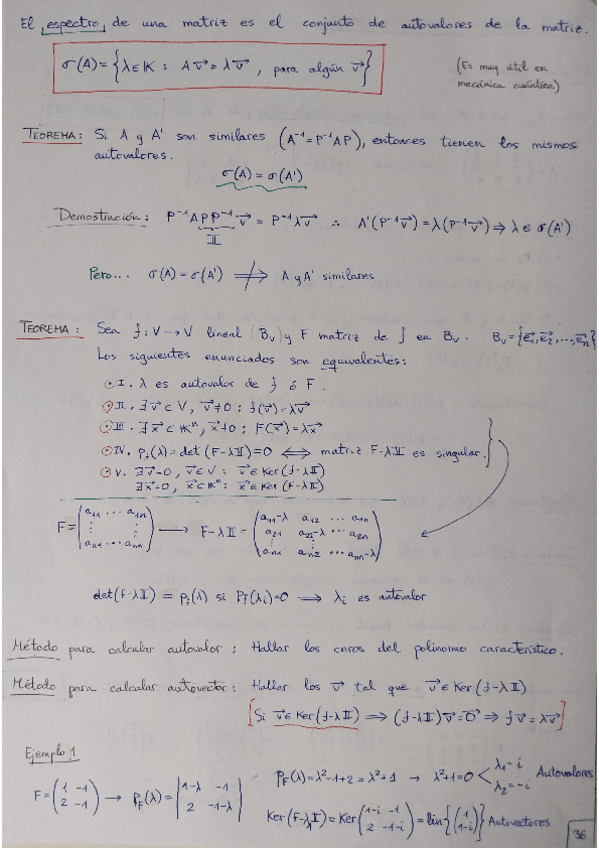 El espectro de una matriz es el conjunto de autovalores de la matriz.
σ(A) = {λ ∈ K : A v⃗ = λ v⃗ , para algún v⃗}
(Es muy útil en
mecánica cuántica)
TEOREMA: Si A y A' son similares (A⁻¹ = P⁻¹AP), entonces tienen los mismos
autovalores.
σ(A) = σ(A')
Demostración: P⁻¹A P P⁻¹ v⃗ = P⁻¹ λ v⃗ ∴ A'(P⁻¹ v⃗) = λ(P⁻¹ v⃗) ⇒ λ ∈ σ(A')
𝕀
Pero... σ(A) = σ(A') ⇏ A y A' similares
TEOREMA: Sea f: V → V lineal (Bᵥ) y F matriz de f en Bᵥ. Bᵥ = {e⃗₁, e⃗₂, ..., e⃗ₙ}
Los siguientes enunciados son equivalentes:
I. λ es autovalor de f ó F.
II. ∃ v⃗ ∈ V, v⃗ ≠ 0 : f(v⃗) = λ v⃗
III. ∃ x⃗ ∈ Kⁿ, x⃗ ≠ 0 : F(x⃗) = λ x⃗
IV. p_f(λ) = det(F - λ𝕀) = 0 ⟺ matriz F - λ𝕀 es singular.
V. ∃ v⃗ ≠ 0, v⃗ ∈ V : v⃗ ∈ Ker(f - λ𝕀)
∃ x⃗ ≠ 0, x⃗ ∈ Kⁿ : x⃗ ∈ Ker(F - λ𝕀)
F = (a₁₁ ... a₁ₙ ; ⋮ ⋮ ; aₙ₁ ... aₙₙ) → F - λ𝕀 = (a₁₁-λ a₁₂ ... a₁ₙ ; a₂₁ a₂₂-λ ... a₂ₙ ; ⋮ ⋮ ; aₙ₁ aₙ₂ ... aₙₙ-λ)
det(F - λ𝕀) = p_f(λ) si p_f(λᵢ) = 0 ⟹ λᵢ es autovalor
Método para calcular autovalor: Hallar los ceros del polinomio característico.
Método para calcular autovector: Hallar los v⃗ tal que v⃗ ∈ Ker(f - λ𝕀)
[Si v⃗ ∈ Ker(f - λ𝕀) ⟹ (f - λ𝕀) v⃗ = 0⃗ ⇒ f v⃗ = λ v⃗]
Ejemplo 1
F = (1 -1 ; 2 -1) → p_F(λ) = |1-λ -1 ; 2 -1-λ|
p_F(λ) = λ² - 1 + 2 = λ² + 1 → λ² + 1 = 0 < λ₁ = i λ₂ = -i Autovalores
Ker(F - λ₁𝕀) = Ker(1-i -1 ; 2 -1-i) = lin{(1 ; 1-i)} Autovectores
36